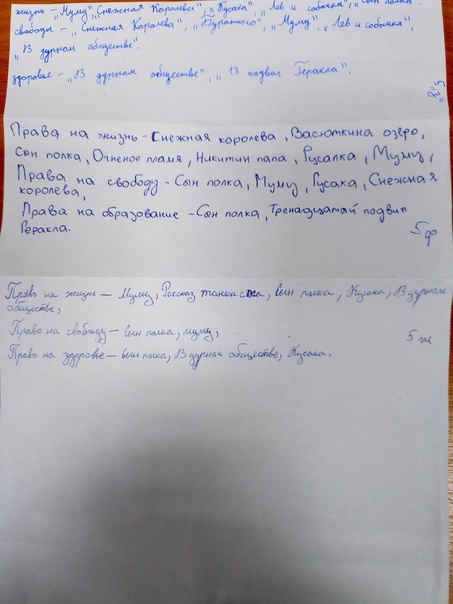 жизнь - „Муму", „Снежная Королева", „Кусака", „Лев и собачка", „Сын полка"
свободы - „Снежная Королева", „Муму", „Лев и собачка",
„В дурном обществе".
здоровье - „В дурном обществе", „13 подвиг Геракла".
Права на жизнь - Снежная королева, Васюткина озеро,
Сын полка, Огненое пламя, Никитин папа, Русалка, Муму,
Права на свободу - Сын полка, Муму, Русака, Снежная
королева,
Права на образование - Сын полка, Тренадцатай подвип
Геракла.
5ф
Право на жизнь - Муму, Рассказ танкиста, Сын палка, Кусака, В дурном
обществе,
Право на свободу - Сын палка, муму,
5
Право на здоровье - Сын палка, В дурнам обществе, Кусака.